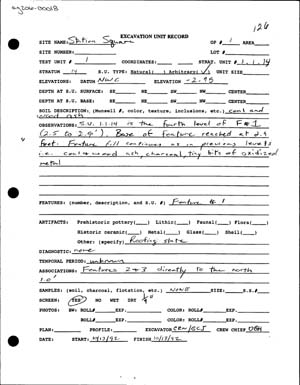 126
EXCAVATION UNIT RECORD
SITE NAME: Station Square OF # 1 AREA
SITE NUMBER: LOT #
TEST UNIT # 1 COORDINATES: STRAT. UNIT # 1.1.14
STRATUM 14 S.U. TYPE: Natural( ) Arbitrary( ) UNIT SIZE
ELEVATIONS: DATUM NWC ELEVATION
DEPTH AT S.U. SURFACE: SE NE NW SW CENTER
DEPTH AT S.U. BASE: SE NE NW SW CENTER
SOIL DESCRIPTION: (Munsell #, color, texture, inclusions, etc.) coal and
wood ash
OBSERVATIONS: S.U. 1.1.14 is the fourth level of F#1
(2.5 to 2.9'). Base of feature reached at 2.9
feet. Feature fill continues as in previous levels
i.e. coal + wood ash, charcoal, tiny bits of oxidized
metal
FEATURES: (number, description, and S.U. #) Feature # 1
ARTIFACTS: Prehistoric pottery( ) Lithic( ) Faunal( ) Flora( )
Historic ceramic( ) Metal( ) Glass( ) Shell( )
Other: (specify) Roofing slate
DIAGNOSTIC: none
TEMPORAL PERIOD: unknown
ASSOCIATIONS: Features 2 + 3 directly to the north
1.0'
SAMPLES: (soil, charcoal, flotation, etc.) NONE SIZE: S.U.#
SCREEN: YES NO WET DRY 1/4"
PHOTOS: BW: ROLL# EXP. COLOR: ROLL# EXP.
SW: ROLL# EXP. COLOR: ROLL# EXP.
PLAN: PROFILE: EXCAVATOR CRW/BCJ CREW CHIEF
DATE: START: 10/13/92 FINISH 10/13/92